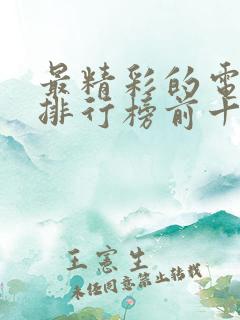 最精彩的電
排行榜前十
王憲生
未任同意禁止转载